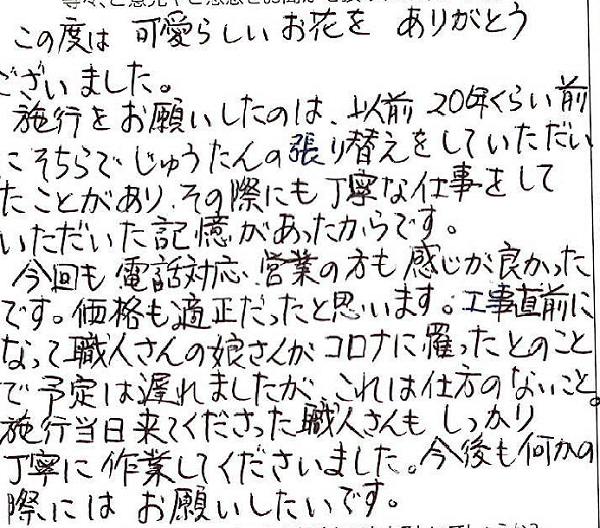 この度は 可愛らしいお花を ありがとう
ございました。
施行をお願いしたのは、以前 20年くらい前
にそちらでじゅうたんの張り替えをしていただい
たことがあり、その際にも丁寧な仕事をして
いただいた記憶があったからです。
今回も 電話対応、営業の方も 感じが良かった
です。価格も適正だったと思います。工事直前に
なって職人さんの娘さんがコロナに罹ったとのこと
で予定は遅れましたが、これは仕方のないこと。
施行当日来てくださった職人さんも しっかり
丁寧に 作業してくださいました。今後も何かの
際には お願いしたいです。